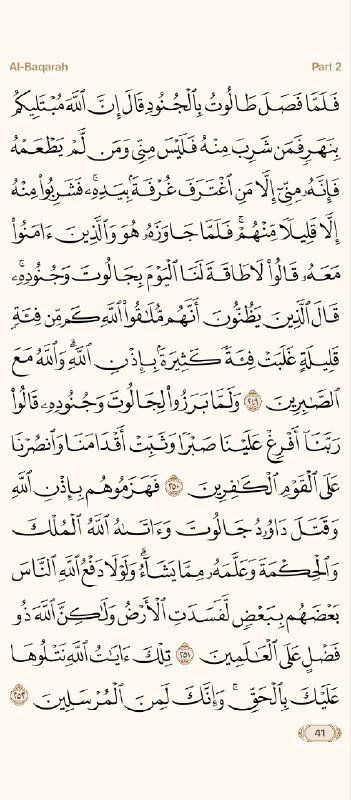 Al-Baqarah
Part 2
فَلَمَّا فَصَلَ طَالُوتُ بِٱلۡجُنُودِ قَالَ إِنَّ ٱللَّهَ مُبۡتَلِيكُم
بِنَهَرٖ فَمَن شَرِبَ مِنۡهُ فَلَيۡسَ مِنِّي وَمَن لَّمۡ يَطۡعَمۡهُ
فَإِنَّهُۥ مِنِّيٓ إِلَّا مَنِ ٱغۡتَرَفَ غُرۡفَةَۢ بِيَدِهِۦۚ فَشَرِبُواْ مِنۡهُ
إِلَّا قَلِيلٗا مِّنۡهُمۡۚ فَلَمَّا جَاوَزَهُۥ هُوَ وَٱلَّذِينَ ءَامَنُواْ
مَعَهُۥ قَالُواْ لَا طَاقَةَ لَنَا ٱلۡيَوۡمَ بِجَالُوتَ وَجُنُودِهِۦۚ
قَالَ ٱلَّذِينَ يَظُنُّونَ أَنَّهُم مُّلَٰقُواْ ٱللَّهِ كَم مِّن فِئَةٖ
قَلِيلَةٍ غَلَبَتۡ فِئَةٗ كَثِيرَةَۢ بِإِذۡنِ ٱللَّهِۗ وَٱللَّهُ مَعَ
ٱلصَّٰبِرِينَ ٢٤٩ وَلَمَّا بَرَزُواْ لِجَالُوتَ وَجُنُودِهِۦ قَالُواْ
رَبَّنَآ أَفۡرِغۡ عَلَيۡنَا صَبۡرٗا وَثَبِّتۡ أَقۡدَامَنَا وَٱنصُرۡنَا
عَلَى ٱلۡقَوۡمِ ٱلۡكَٰفِرِينَ ٢٥٠ فَهَزَمُوهُم بِإِذۡنِ ٱللَّهِ
وَقَتَلَ دَاوُۥدُ جَالُوتَ وَءَاتَىٰهُ ٱللَّهُ ٱلۡمُلۡكَ
وَٱلۡحِكۡمَةَ وَعَلَّمَهُۥ مِمَّا يَشَآءُۗ وَلَوۡلَا دَفۡعُ ٱللَّهِ ٱلنَّاسَ
بَعۡضَهُم بِبَعۡضٖ لَّفَسَدَتِ ٱلۡأَرۡضُ وَلَٰكِنَّ ٱللَّهَ ذُو
فَضۡلٍ عَلَى ٱلۡعَٰلَمِينَ ٢٥١ تِلۡكَ ءَايَٰتُ ٱللَّهِ نَتۡلُوهَا
عَلَيۡكَ بِٱلۡحَقِّۚ وَإِنَّكَ لَمِنَ ٱلۡمُرۡسَلِينَ ٢٥٢
41